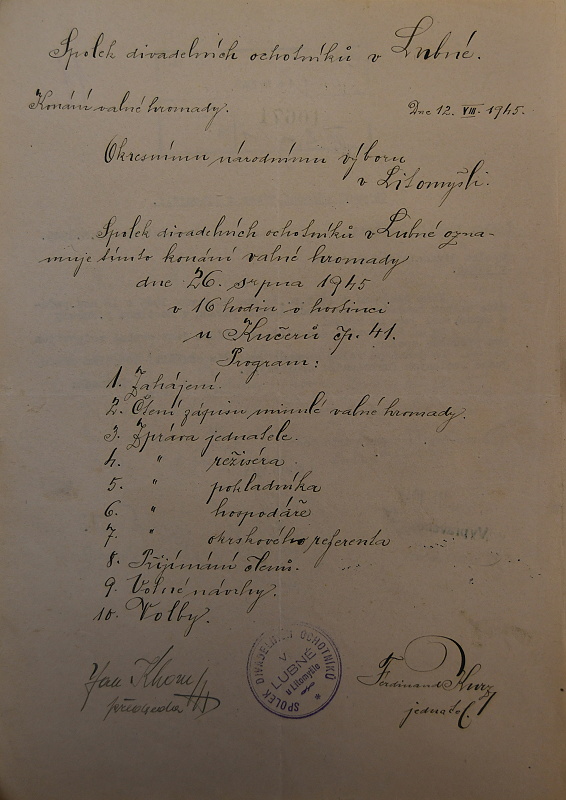 Spolek divadelních ochotníků v Lubné.
Konání valné hromady.
Dne 12. VIII. 1945.
Okresnímu národnímu výboru
v Litomyšli.
Spolek divadelních ochotníků v Lubné ozna-
muje tímto konání valné hromady
dne 26. srpna 1945
v 16 hodin v hostinci
u Kučerů čp. 41.
Program:
1. Zahájení.
2. Čtení zápisu minulé valné hromady.
3. Zpráva jednatele.
4. " režiséra
5. " pokladníka
6. " hospodáře
7. " okrskového referenta
8. Přijímání členů.
9. Volné návrhy.
10. Volby.
SPOLEK DIVADELNÍCH OCHOTNÍKŮ
V
LUBNÉ
u Litomyšle
Jan
předseda
Ferdinand Kurz
jednatel.